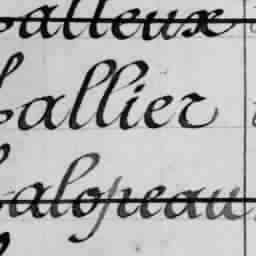 alleux
allier
alopeau